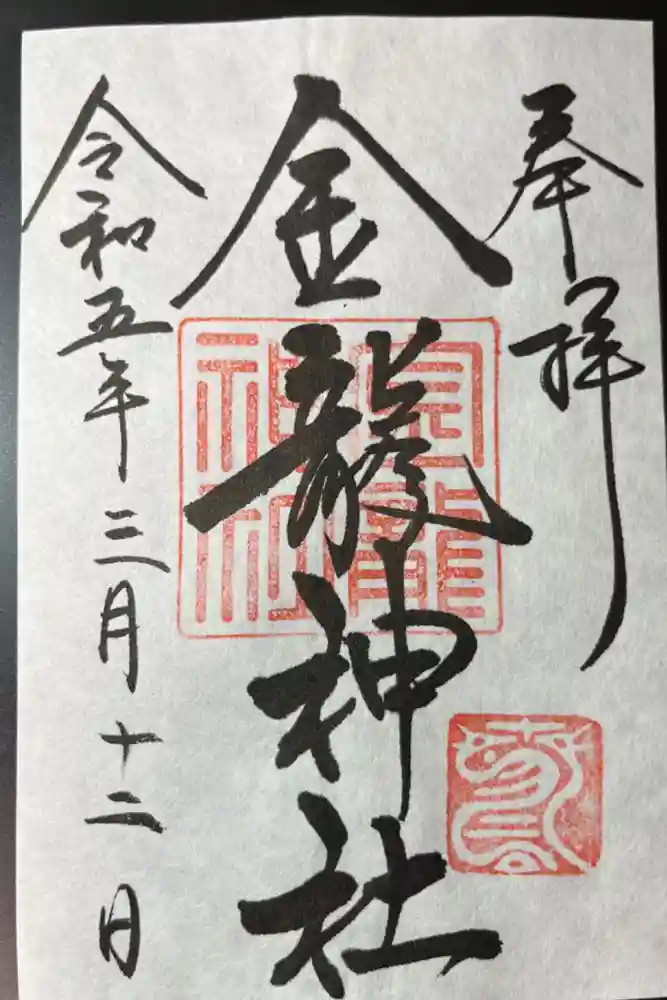 奉拝
金龍神社
金龍神社
令和五年三月十二日